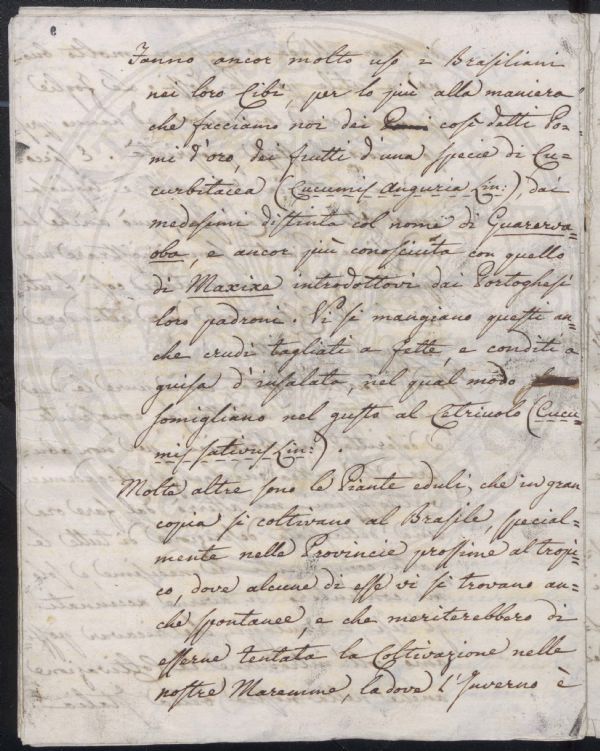 Fanno ancor molto uso i Brasiliani
nei loro Cibi, per lo più alla maniera
che facciamo noi dei così detti Po=
mi d'oro, dei frutti d'una specie di Cu=
curbitacea (Cucumis Anguria Lin:), dai
medesimi distinta col nome di Guarerva=
oba, e ancor più conosciuta con quello
di Maxixe introdottovi dai Portoghesi
loro padroni. Vi si mangiano questi an=
che crudi tagliati a fette, e conditi a
guisa d'insalata, nel qual modo
somigliano nel gusto al Cetriuolo (Cucu=
mis sativus Lin:).
Molte altre sono le Piante eduli, che in gran
copia si coltivano al Brasile, special=
mente nelle Provincie prossime al tropi=
co, dove alcune di esse vi si trovano an=
che spontanee, e che meriterebbero di
esserne tentata la Coltivazione nelle
nostre Maremme, là dove l'Inverno è